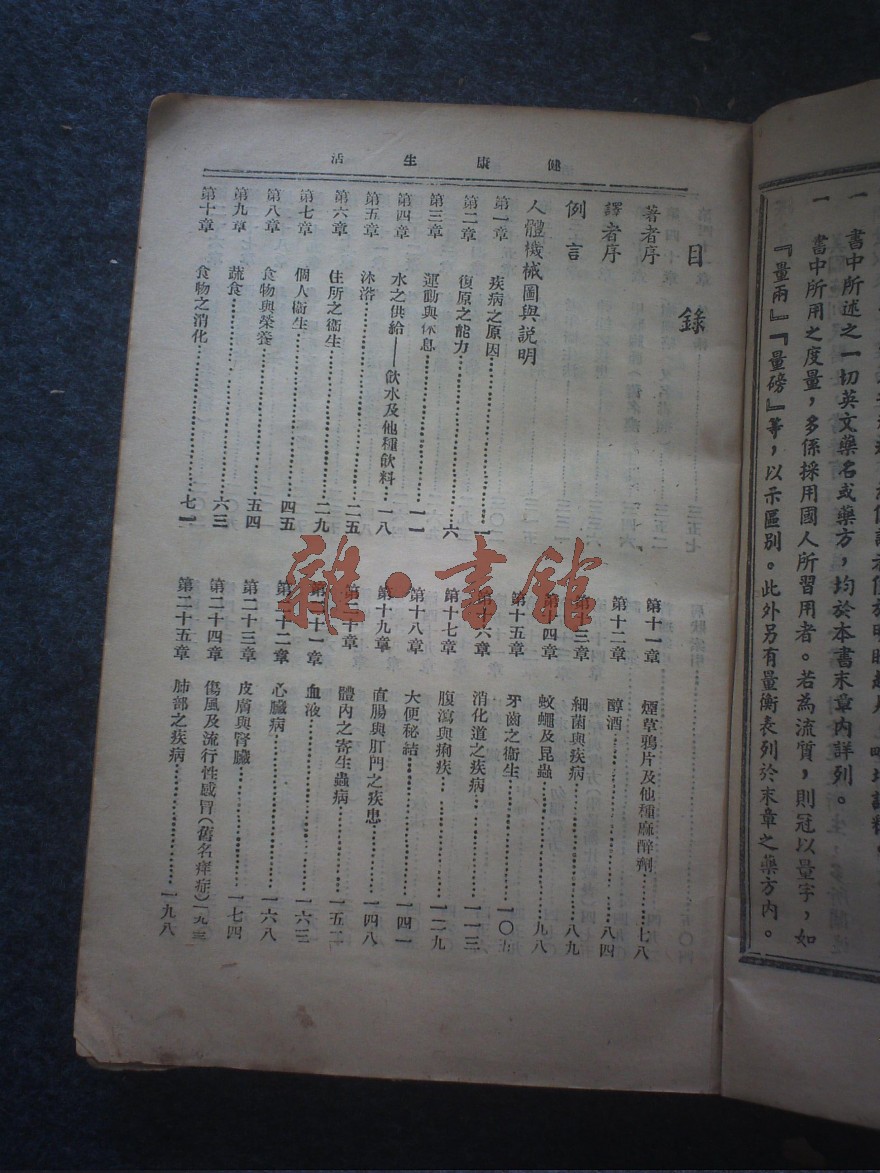 一 書中所述之一切英文藥名或藥方，均於本書末章內詳列。
一 書中所用之度量，多係採用國人所習用者。若為流質，則冠以量字，如
『量兩』『量磅』等，以示區別。此外另有量衡表列於末章之藥方內。
健康生活
目錄
著者序
譯者序
例言
人體機械圖與説明
第一章 疾病之原因
第二章 復原之能力 六
第三章 運動與休息 一一
第四章 水之供給——飲水及他種飲料 一八
第五章 沐浴 二五
第六章 住所之衞生 二九
第七章 個人衞生 四五
第八章 食物與榮養 五四
第九章 蔬食 六三
第十章 食物之消化 七一
第十一章 煙草鴉片及他種麻醉劑 七八
第十二章 醇酒 八四
第十三章 細菌與疾病 八九
第十四章 蚊蠅及昆蟲 九八
第十五章 牙齒之衞生 一〇五
第十六章 消化道之疾病 一一三
第十七章 腹瀉與痢疾 一二九
第十八章 大便秘結 一四一
第十九章 直腸與肛門之疾患 一四八
第二十章 體內之寄生蟲病 一五二
第二十一章 血液 一六三
第二十二章 心臟病 一六八
第二十三章 皮膚與腎臟 一七四
第二十四章 傷風及流行性感冒（舊名痒症） 一九三
第二十五章 肺部之疾病 一九八
雜·書館